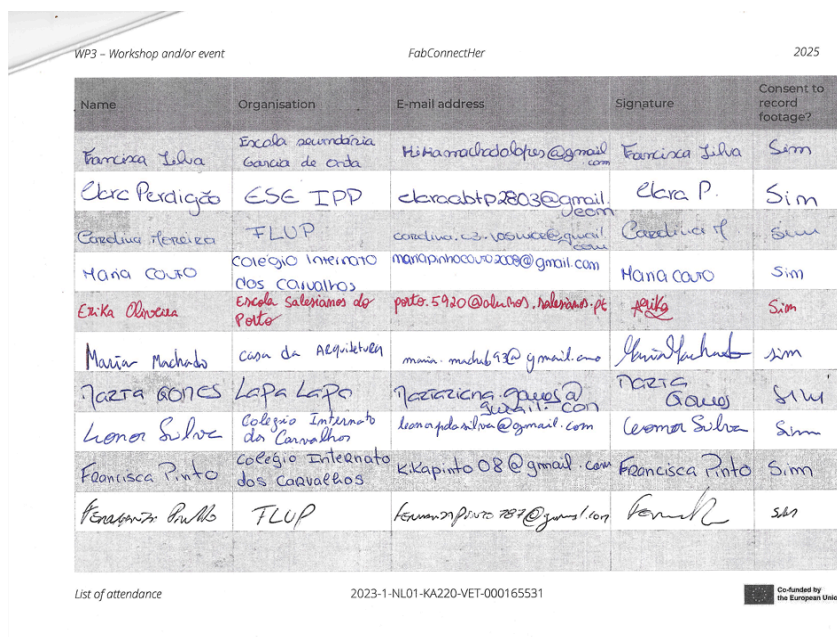 WP3 – Workshop and/or event FabConnectHer 2025
Name Organisation E-mail address Signature Consent to record footage?
Francisca Silva Escola secundária Garcia de Orta kikamachadolopes@gmail.com Francisca Silva Sim
Clara Perdigão ESE IPP claraabtp2803@gmail.com Clara P. Sim
Carolina Moreira FLUP Carolina M Sim
Maria Couto Colégio Internato dos Carvalhos mariapinhocouto2008@gmail.com Maria Couto Sim
Erika Oliveira Escola Salesianos do Porto porto.5920@alunos.salesianos.pt Erika Sim
Maria Machado casa da Arquitetura Maria Machado sim
Marta Gomes Lapa Lapa Marta Gomes Sim
Leonor Silva Colégio Internato dos Carvalhos leonorpdasilva@gmail.com Leonor Silva Sim
Francisca Pinto Colégio Internato dos Carvalhos kikapinto08@gmail.com Francisca Pinto Sim
FLUP sim
List of attendance 2023-1-NL01-KA220-VET-000165531 Co-funded by
the European Unio